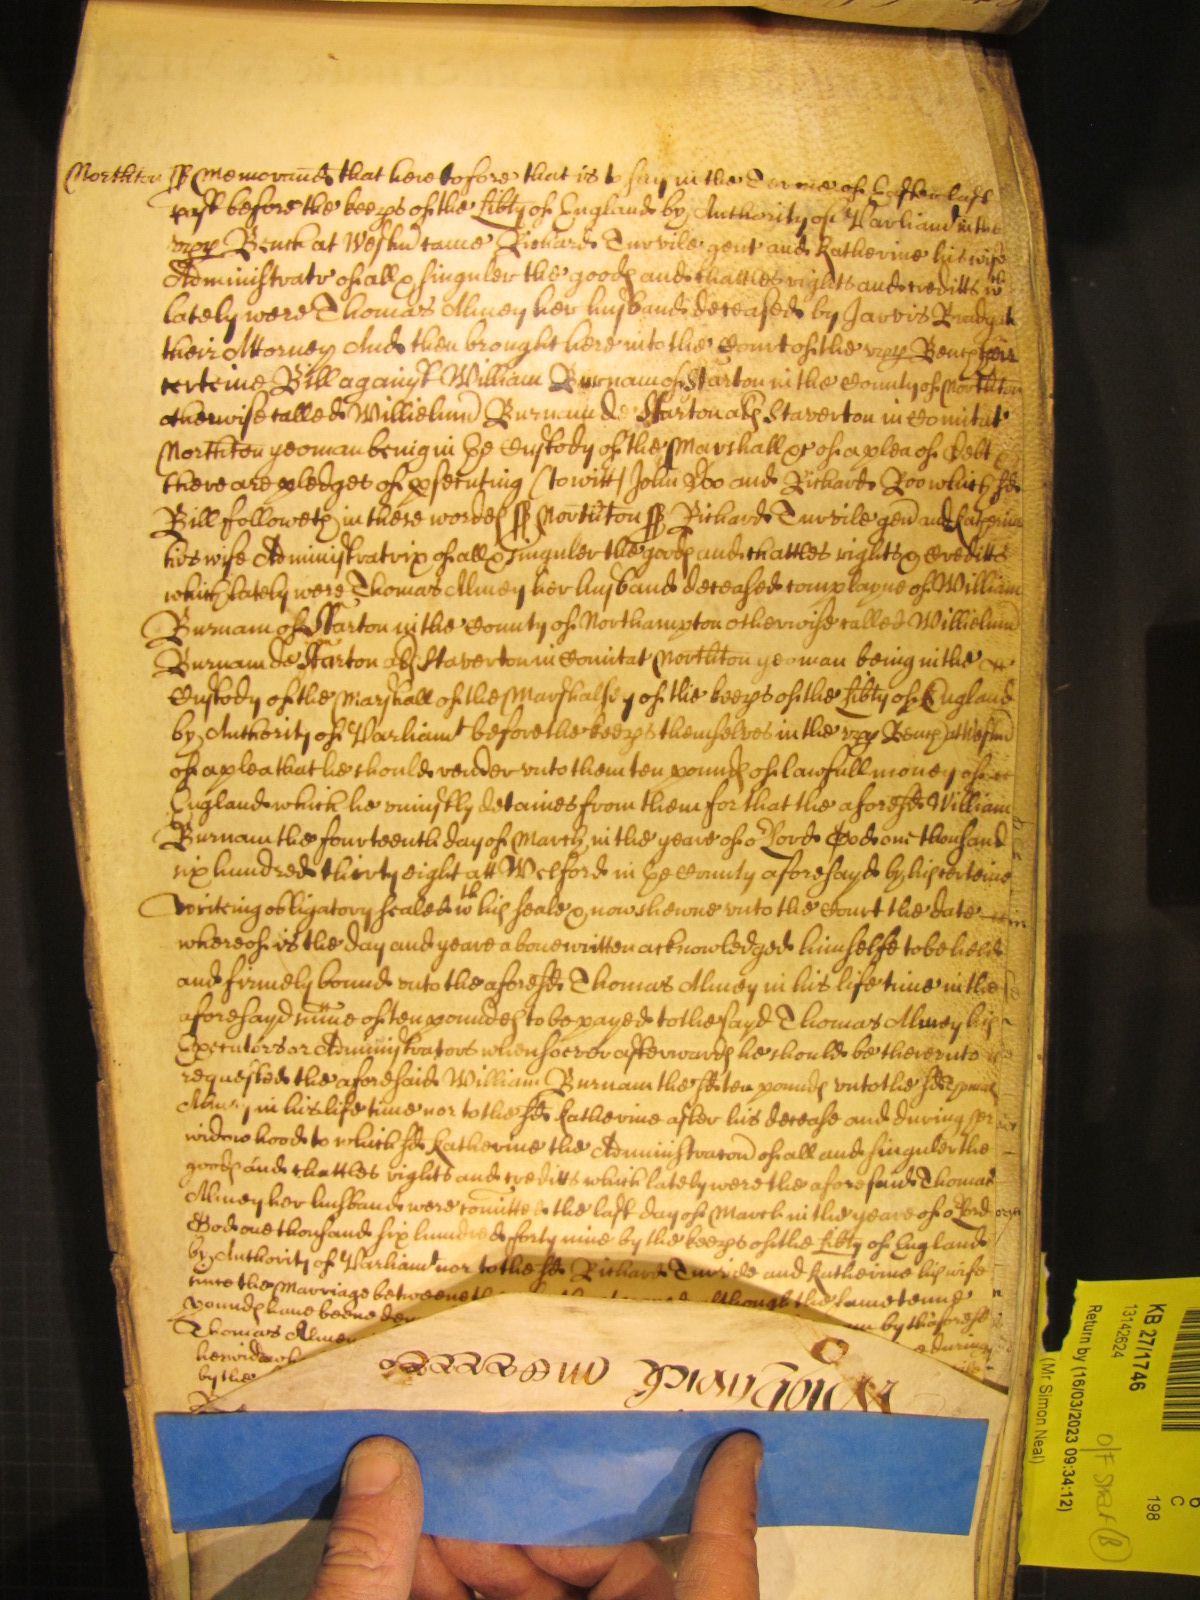 Northton ss Memorand that heretofore that is to say in the Terme of Easter last
past before the keeps of the Libty of England by Authority of Parliam in the
upp Bench at Westm came Richard Turvile gent and Katherine his wife
Administratr of all & singuler the goods and chattles rights and creditts wch
lately were Thomas Almey her husband deceased by Jarvis
their Attorney And then brought here into the Court of the upp Bench their
certeine Bill against William Burnam of Starton in the County of Northton
otherwise called Willielmu Burnam de Starton als Staverton in Comitat
Northton yeoman being in ye Custody of the Marshall &c of a plea of debt
there are pledges of psecuting (to witt) John Doo and Richard Roo which sd
Bill followeth in these words ss Northton ss Richard Turvile gen and Katherine
his wife Administratrix of all & singuler the goods and chattles rights & Creditts
which lately were Thomas Almey her husband deceased complayne of William
Burnam of Starton in the County of Northampton otherwise called Willielmu
Burnam de Starton als Staverton in Comitat Northton yeoman being in the
Custody of the Marshall of the Marshalsey of the keeps of the Libty of England
by Authority of Parliamt before the keeps themselves in the upp Bench at Westm
of a plea that he should render unto them ten pounds of lawfull money of
England which he uniustly detaines from them for that the aforesd William
Burnam the fourteenth day of March in the yeare of or Lord God one thousand
six hundred thirty eight att Welford in ye County aforesayd by his certeine
writeing obligatory sealed wth his seale & now shewne unto the Court the date
whereof is the day and yeare above written acknowledged himselfe to be held
and firmely bound unto the aforesd Thomas Almey in his life time in the
aforesayd sume of ten pounds to be payed to the sayd Thomas Almey his
Executors or Administrators whensoever afterwards he should be thereunto
requested the aforesaid William Burnam the sd ten pounds unto the sd Thomas
Almey in his life time nor to the sd Katherine after his decease and during her
widowhood to which sd Katherine the Administracon of all and singuler the
goods and chattles rights and creditts which lately were the aforesaid Thomas
Almey her husband were comitted the last day of March in the yeare of or Lord
God one thousand six hundred forty nine by the keeps of the Libty of England
by Authority of Parliamt nor to the sd Richard Turvile and Katherine his wife
since the Marriage betweene them although the same tenne
pounds have beene dem am by the aforesd
Thomas Almey e during
her widowh
by the
KB 27/1746
13142624
Return by (16/03/2023 09:34:12)
(Mr Simon Neal)
198
C
6